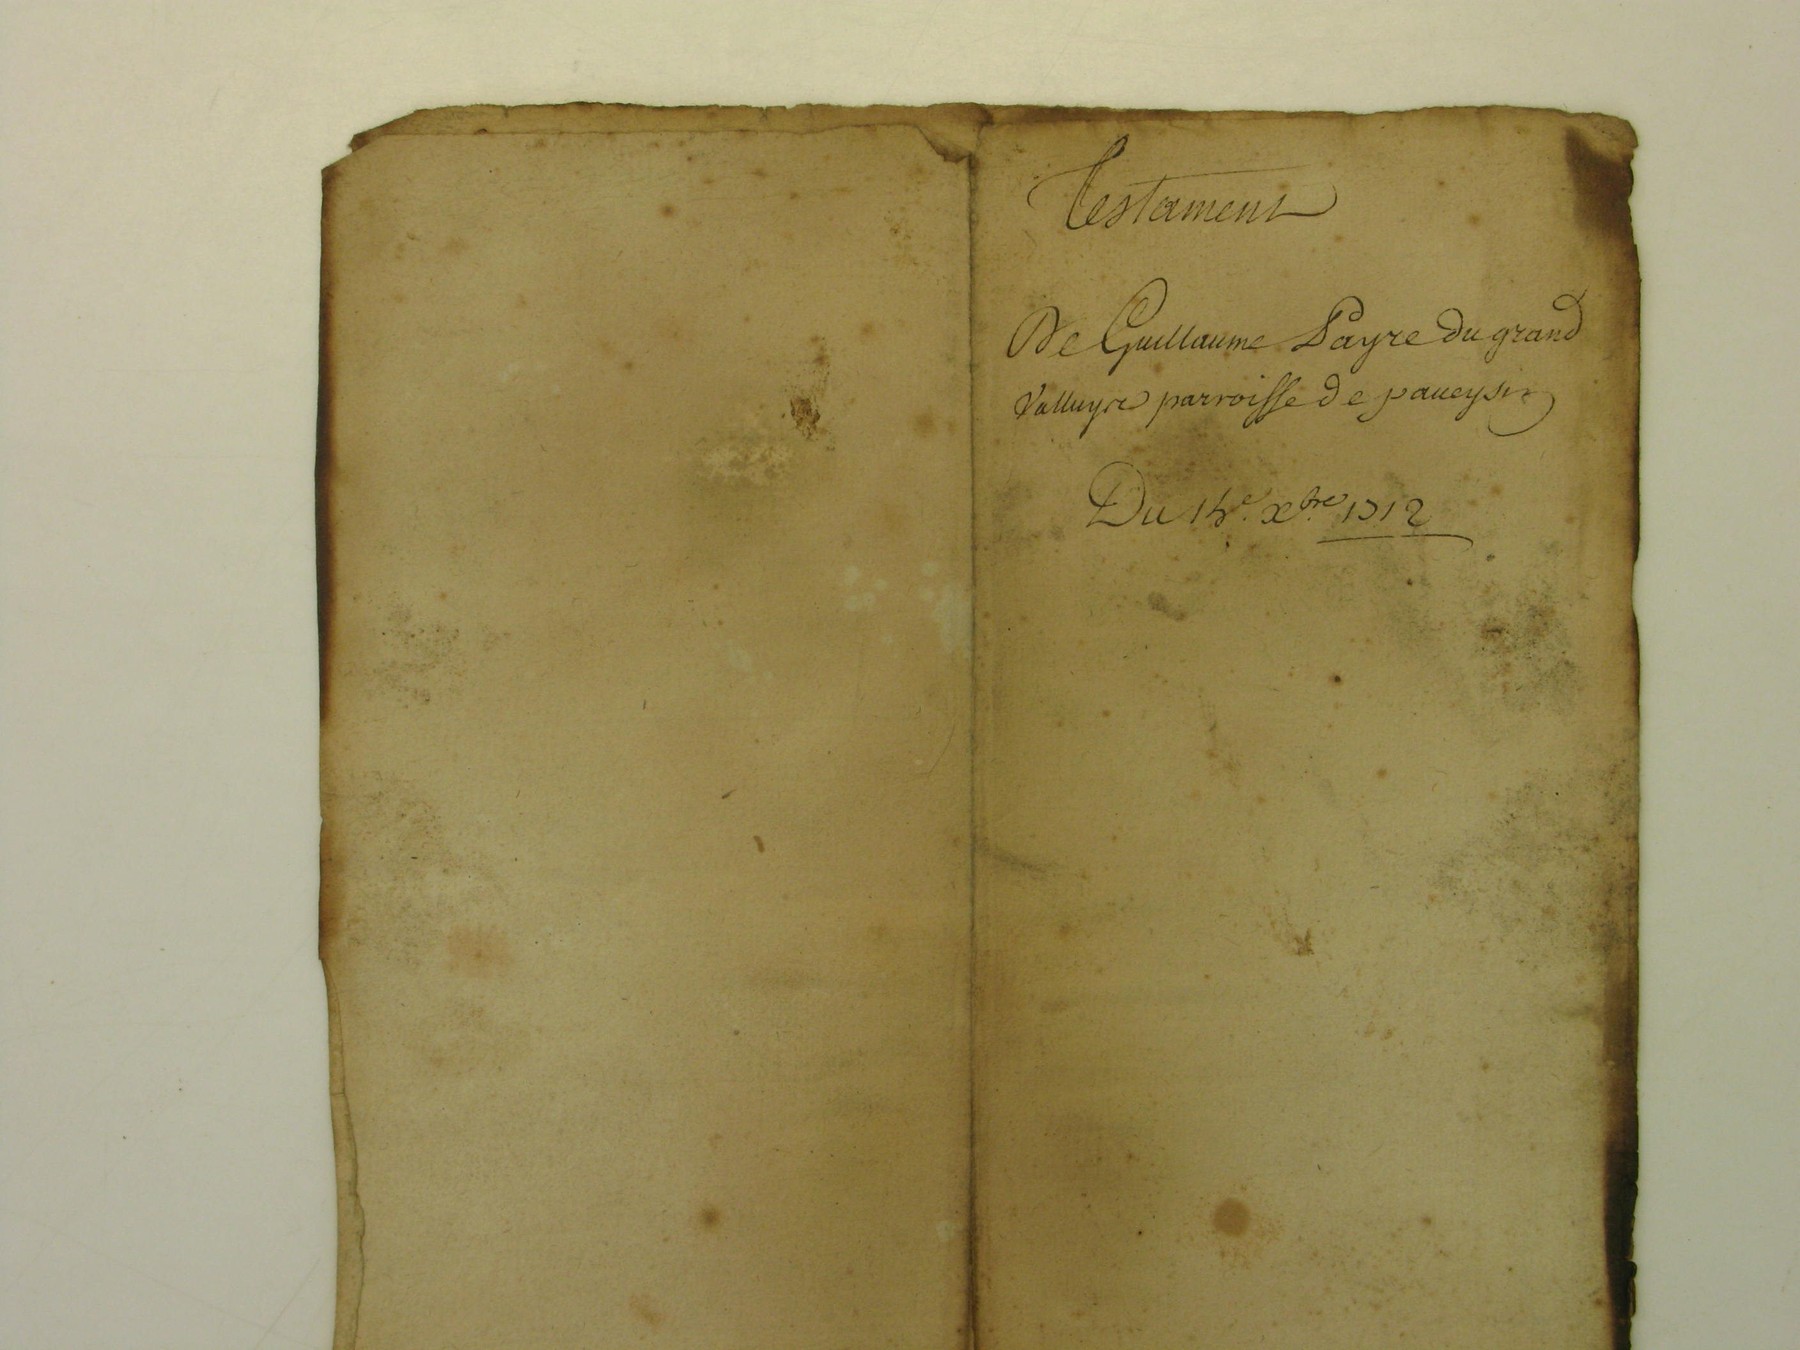 Testament
De Guillaume Payre du grand
Valluyre parroisse de paueysin
Du 14e. xbre. 1712